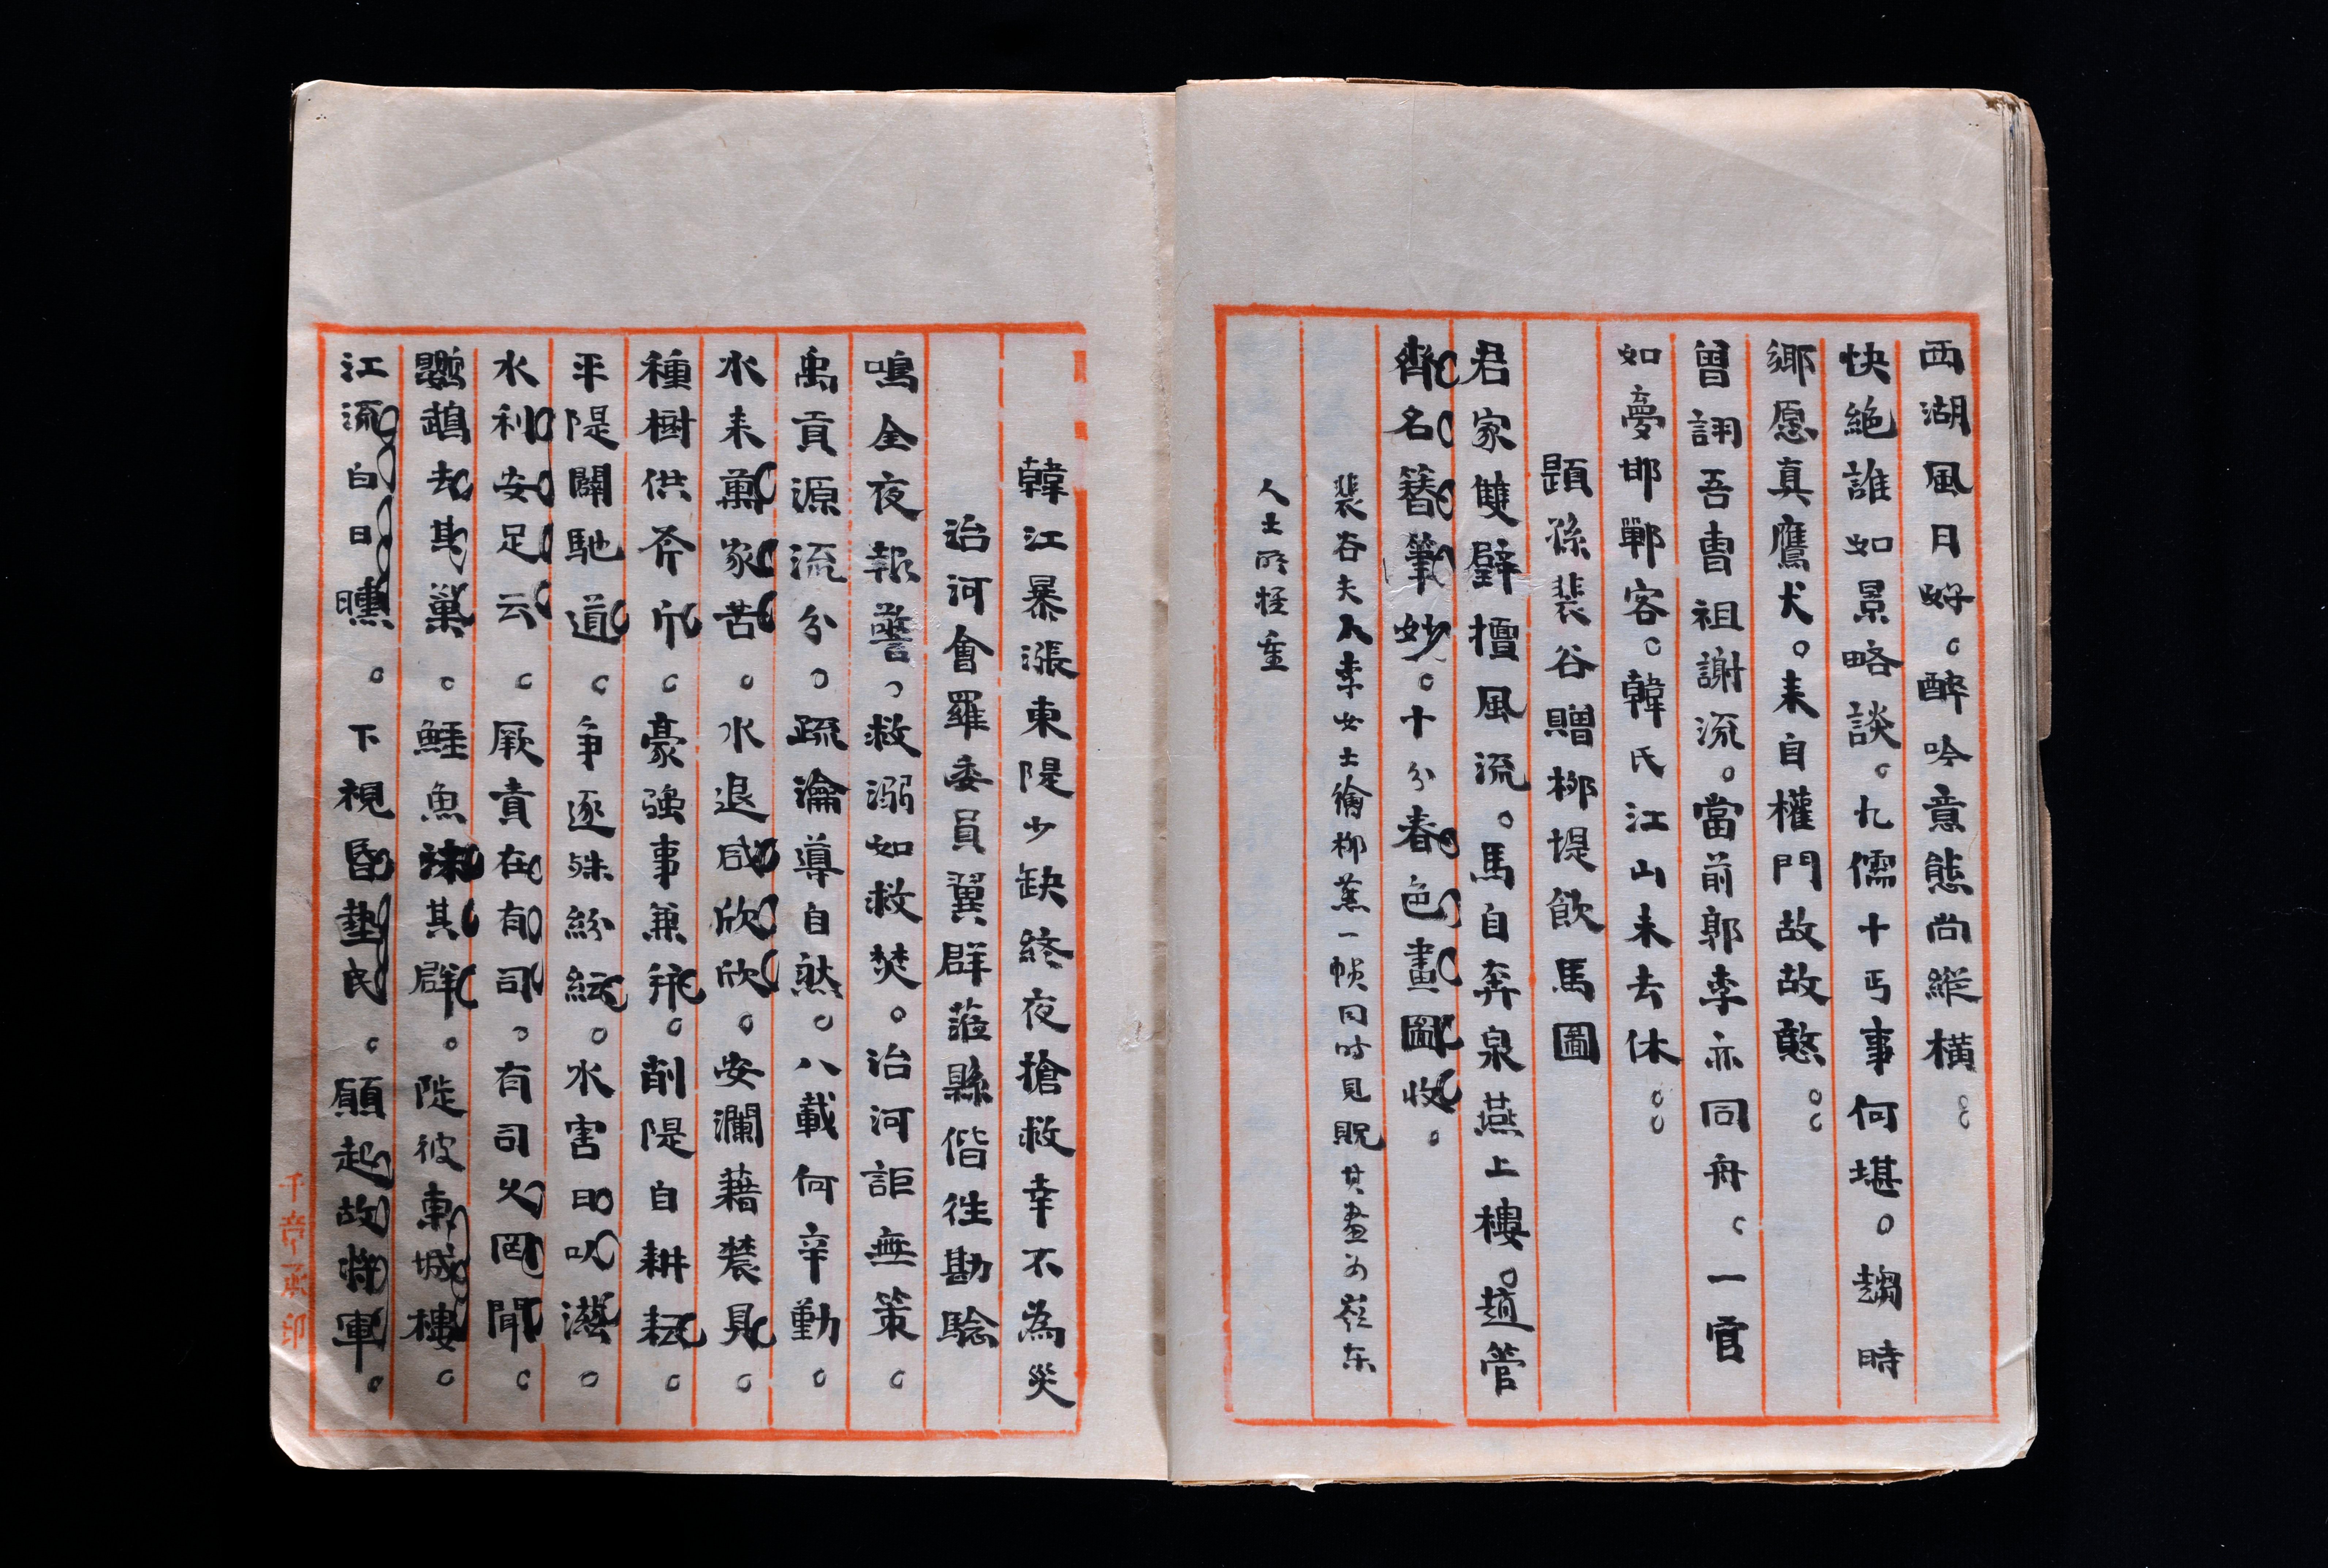 西湖風日好。醉吟意態尚縱橫。。
快絕誰如景略談。九儒十丐事何堪。趨時
鄉愿真鷹犬。來自權門故故憨。。
曾詡吾曹祖謝流。當前郭李亦同舟。一官
如夢邯鄲客。韓氏江山未去休。。
題孫裴谷贈柳堤飲馬圖
君家雙璧擅風流。馬自奔泉燕上樓。趙管
齊名簪筆妙。十分春色畫圖收。
裴谷夫人李女士繪柳燕一幀同時見貺其畫為嶺東
人士所推重
韓江暴漲東隄少缺終夜搶救幸不為災
治河會羅委員翼群蒞縣偕往勘驗
鳴金夜報警。救溺如救焚。治河詎無策。
禹貢源流分。疏瀹導自然。八載何辛勤。
水來萬家苦。水退咸欣欣。安瀾藉農具。
種樹供斧斤。豪強事兼并。削隄自耕耘。
平隄闢馳道。爭逐殊紛紜。水害日以滋。
水利安足云。厥責在有司。有司久罔聞。
鸚鵡去其巢。鱷魚沬其群。陡彼東城樓。
江流白日曛。下視昏墊民。願起故將軍。
千章承印